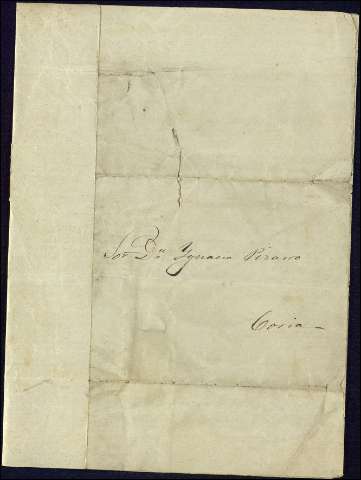 Sor Dn Ygnacio Pizarro
Coria